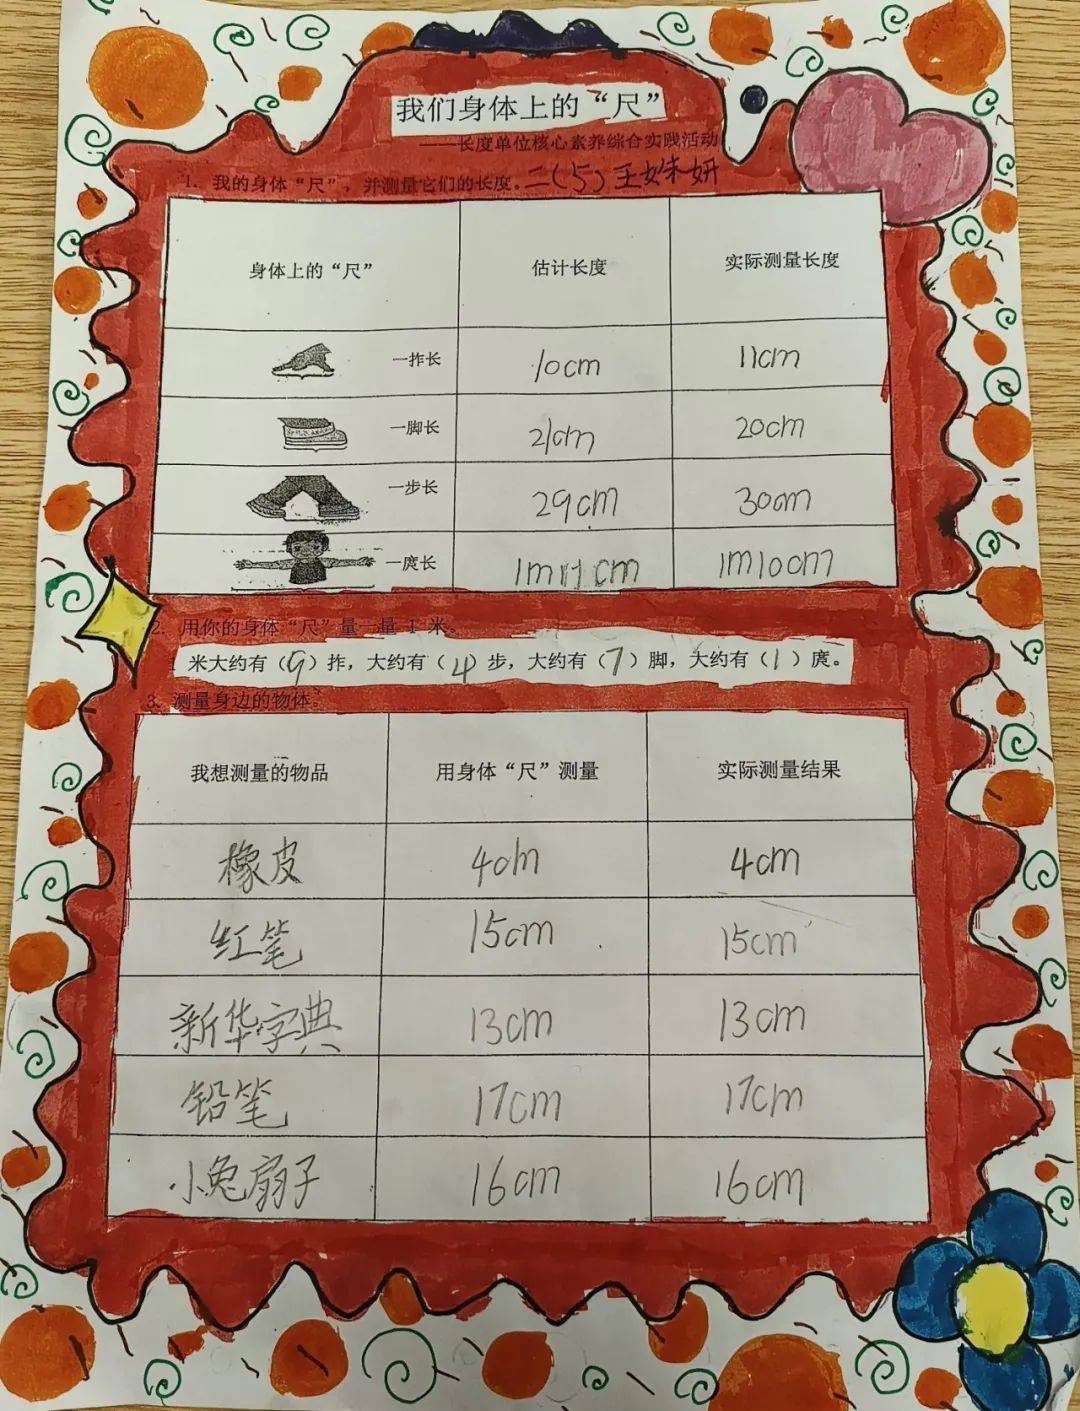 我们身体上的“尺”
——长度单位核心素养综合实践活动
1. 我的身体“尺”，并测量它们的长度。二(5)王姝妍
身体上的“尺” 估计长度 实际测量长度
一拃长 10cm 11cm
一脚长 21cm 20cm
一步长 29cm 30cm
一庹长 1m11cm 1m10cm
2. 用你的身体“尺”量一量 1 米。
1 米大约有（9）拃，大约有（4）步，大约有（7）脚，大约有（1）庹。
3. 测量身边的物体。
我想测量的物品 用身体“尺”测量 实际测量结果
橡皮 4cm 4cm
红笔 15cm 15cm
新华字典 13cm 13cm
铅笔 17cm 17cm
小兔扇子 16cm 16cm